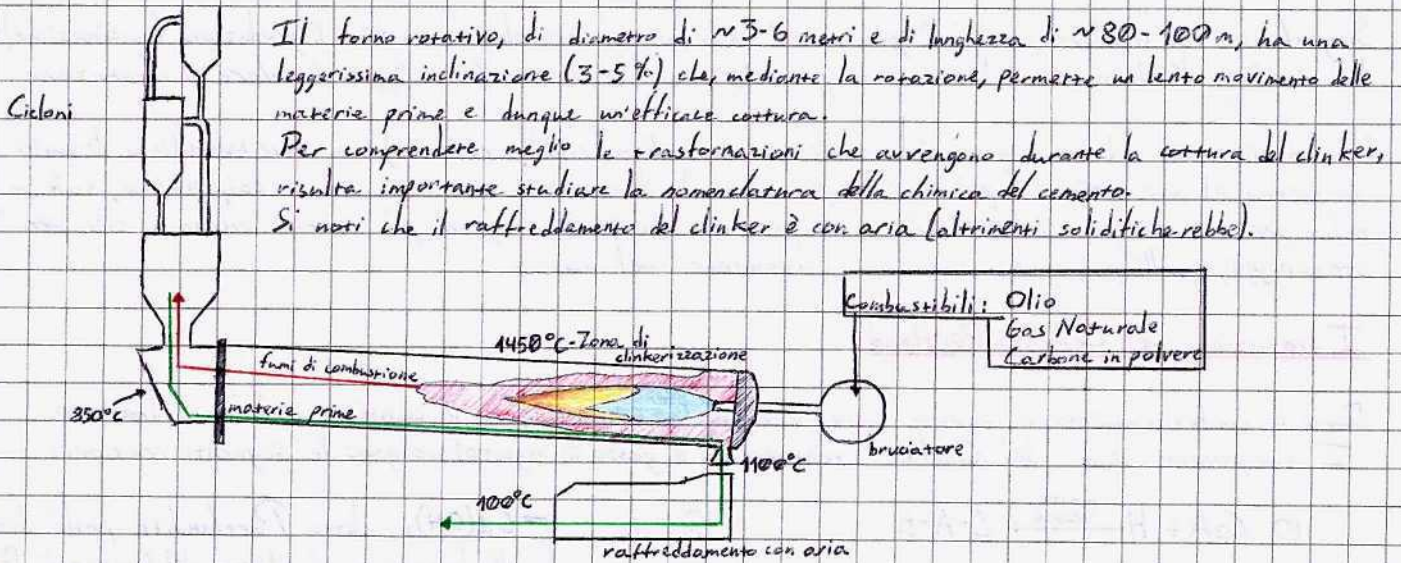 Il forno rotativo, di diametro di ~ 3-6 metri e di lunghezza di ~ 80-100 m, ha una
leggerissima inclinazione (3-5 %) che, mediante la rotazione, permette un lento movimento delle
materie prime e dunque un'efficace cottura.
Per comprendere meglio le trasformazioni che avvengono durante la cottura del clinker,
risulta importante studiare la nomenclatura della chimica del cemento.
Si noti che il raffreddamento del clinker è con aria (altrimenti solidificherebbe).
Cicloni
Combustibili: Olio
Gas Naturale
Carbone in polvere
1450°C-Zona di
clinkerizzazione
fumi di combustione
materie prime
850°C
bruciatore
1100°C
100°C
raffreddamento con aria